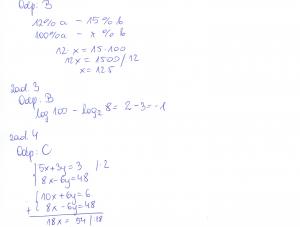 Odp: B
12% a - 15% b
100% a - x % b
12 · x = 15 · 100
12x = 1500 / 12
x = 125
zad. 3
Odp: B
log 100 - log₂ 8 = 2 - 3 = -1
zad. 4
Odp: C
{ 5x + 3y = 3 / · 2
8x - 6y = 48
{ 10x + 6y = 6
+ 8x - 6y = 48
18x = 54 / : 18